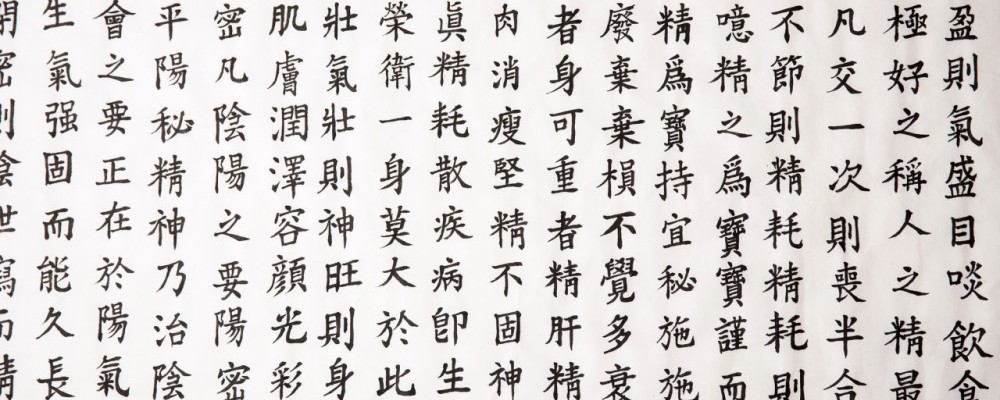 盈則氣盛目啖飲食
極好之稱人之精最
凡交一次則喪半合
不節則精耗精耗則
噫精之爲寶寶謹而
精爲寶持宜秘施施
廢棄棄損不覺多衰
者身可重者精肝精
肉消瘦堅精不固神
眞精耗散疾病卽生
榮衛一身莫大於此
壯氣壯則神旺則身
肌膚潤澤容顔光彩
密凡陰陽之要陽密
平陽秘精神乃治陰
會之要正在於陽氣
生氣强固而能久長